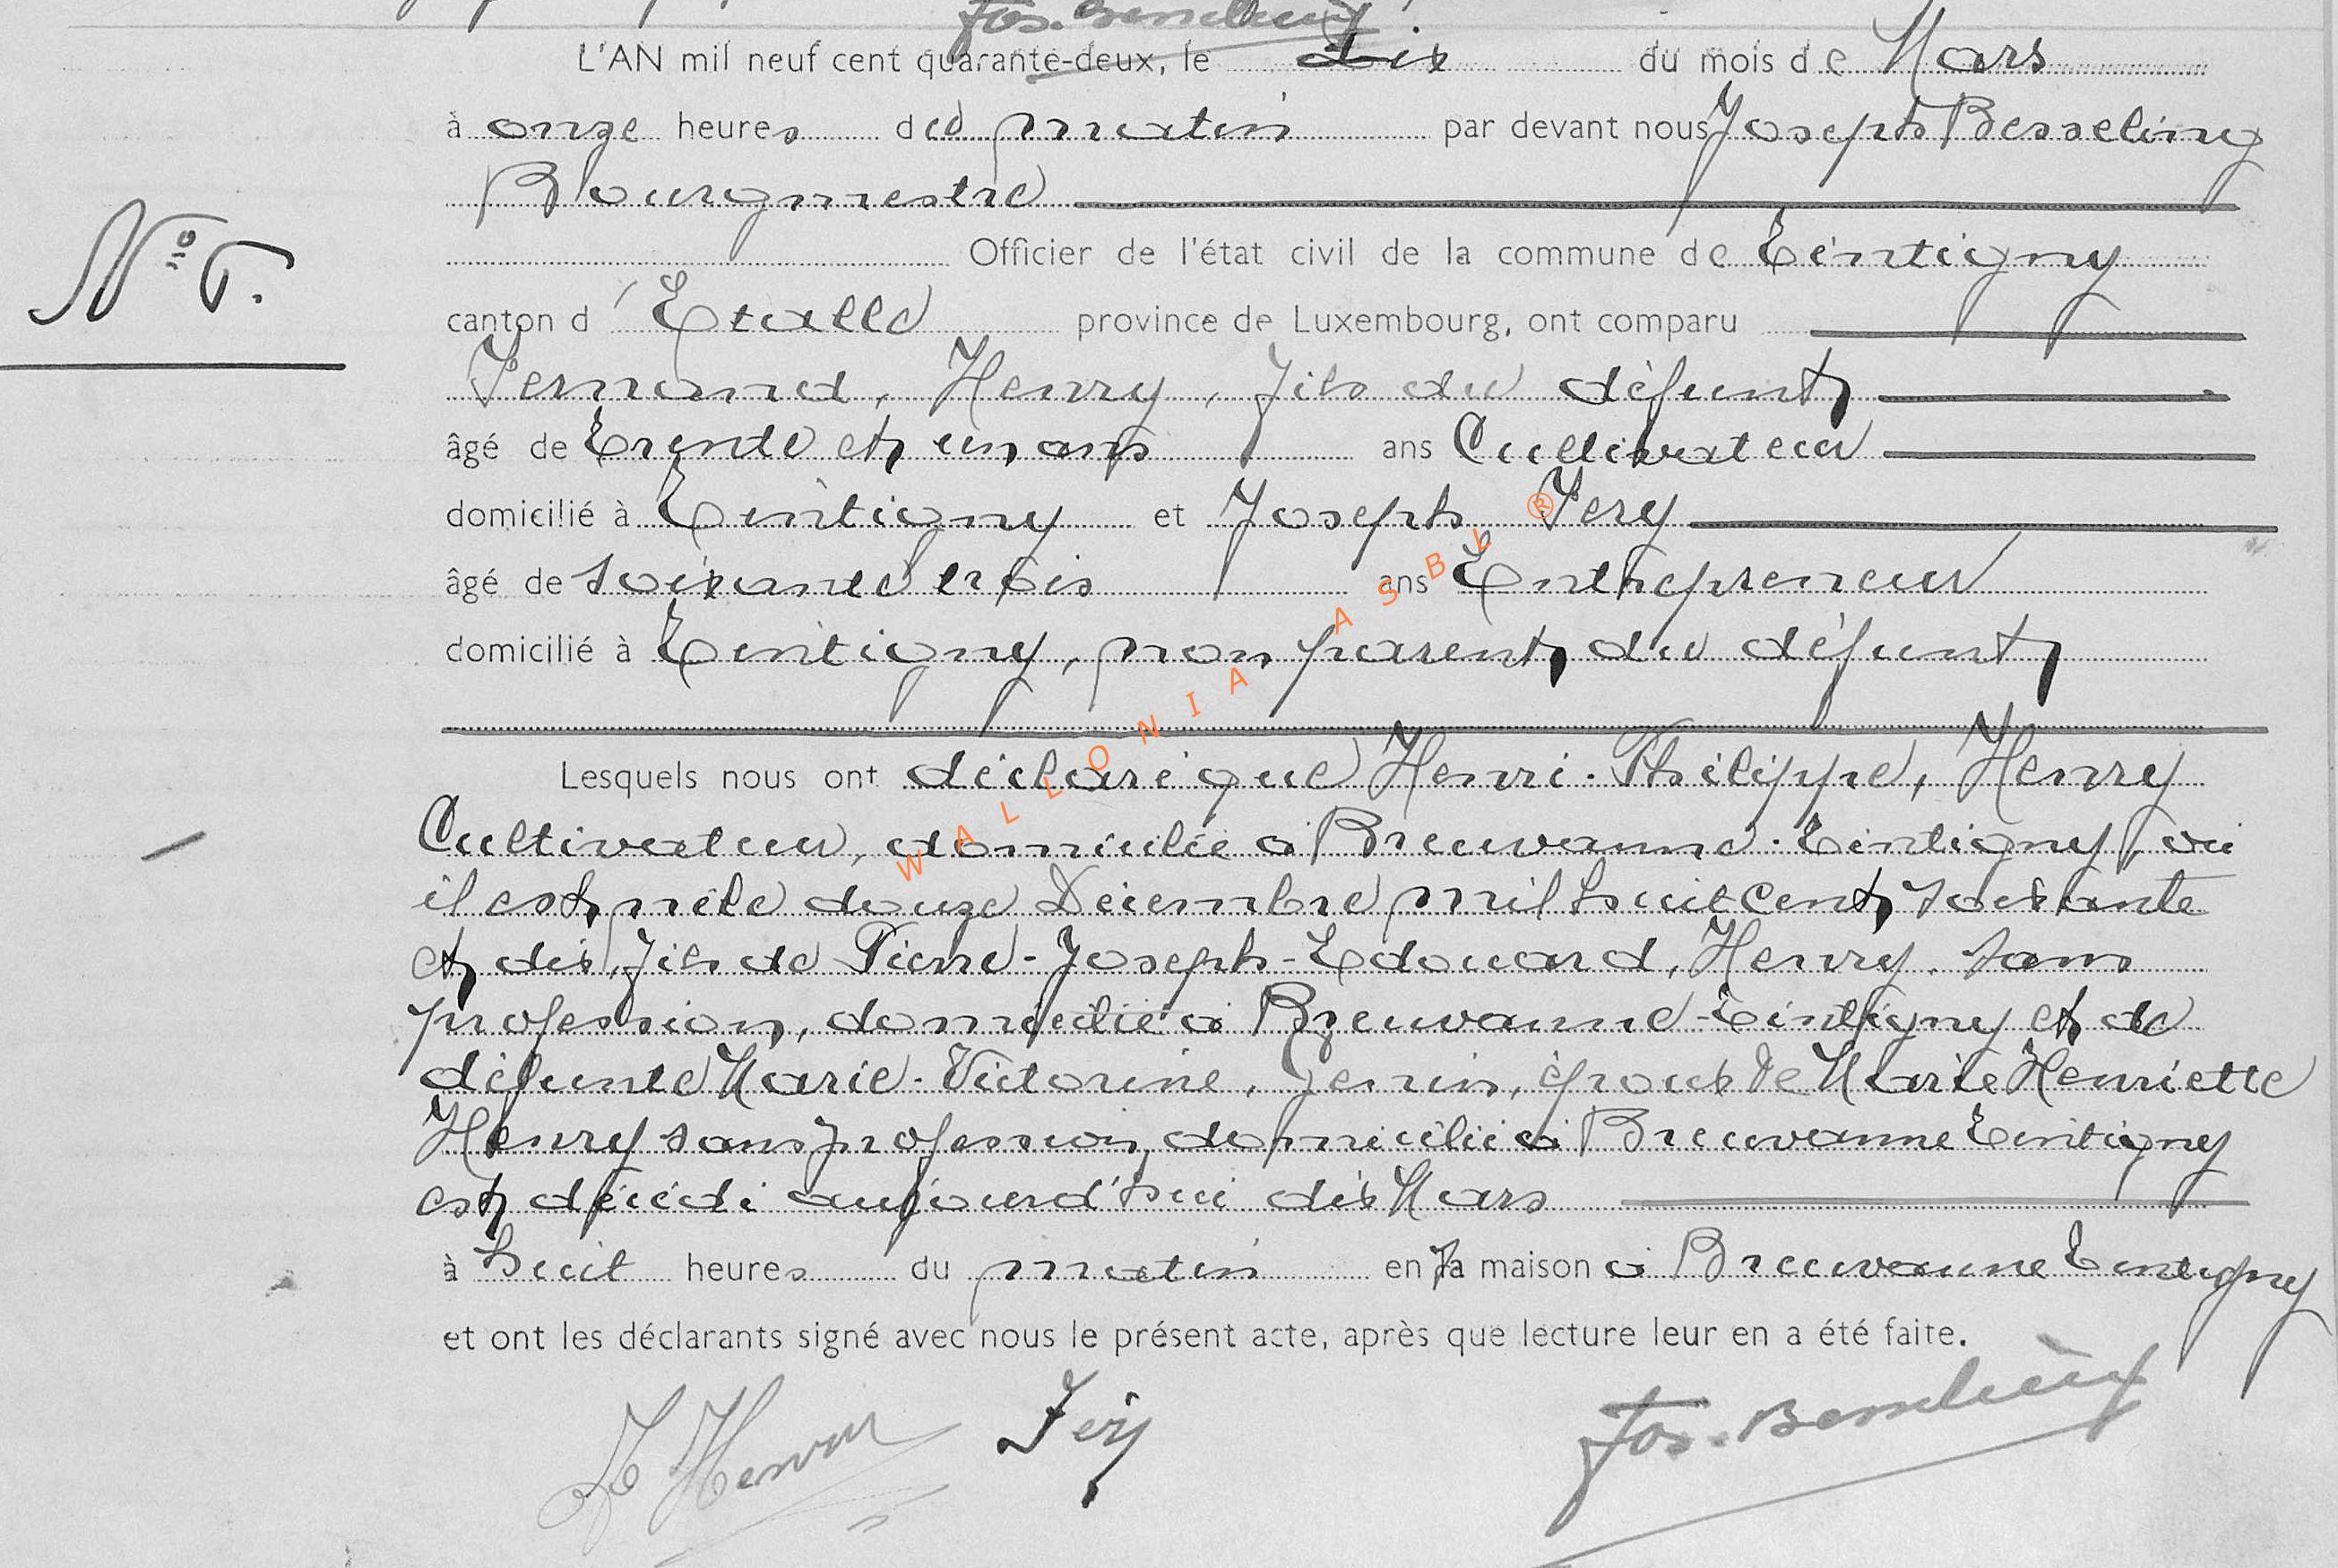 Jos. Besseling
L'AN mil neuf cent quarante-deux, le dix du mois de Mars
à onze heures du matin par devant nous Joseph Besseling
Bourgmestre
Officier de l'état civil de la commune de Tintigny
N° 6.
canton d'Etalle province de Luxembourg, ont comparu
Fernand, Henry, fils du défunt
âgé de Trente et un ans ans Cultivateur
domicilié à Tintigny et Joseph Fery
âgé de soixante trois ans Entrepreneur
domicilié à Tintigny, non parent du défunt
Lesquels nous ont déclaré que Henri-Philippe, Henry
Cultivateur, domicilié à Breuvanne-Tintigny, où
il est né le douze Décembre mil huit cent soixante
et dix, fils de Pierre-Joseph-Edouard, Henry, sans
profession, domicilié à Breuvanne-Tintigny et de
défunte Marie-Victorine, époux de Marie Henriette
Henry sans profession, domiciliée à Breuvanne Tintigny
est décédé aujourd'hui dix Mars
à huit heures du matin en sa maison à Breuvanne Tintigny
et ont les déclarants signé avec nous le présent acte, après que lecture leur en a été faite.
F Henry Fery Jos. Besseling
WALLONIA ASBL ®